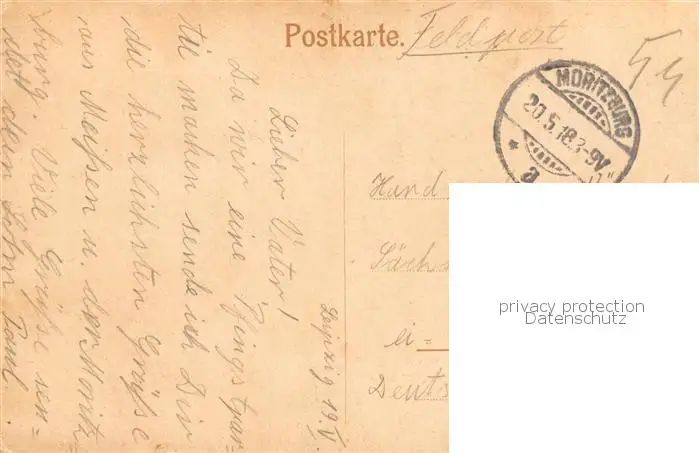 Postkarte. Feldpost
MORITZBURG
20.5.18.3-9V.
* a
Leipzig 19.V.
Lieber Vater!
Da wir eine Pfingstpar-
tie machen sende ich Dir
die herzlichsten Grüße
aus Meißen u. der Moritz-
burg. Viele Grüße sen-
det dein Sohn Paul.
Deuts
privacy protection
Datenschutz